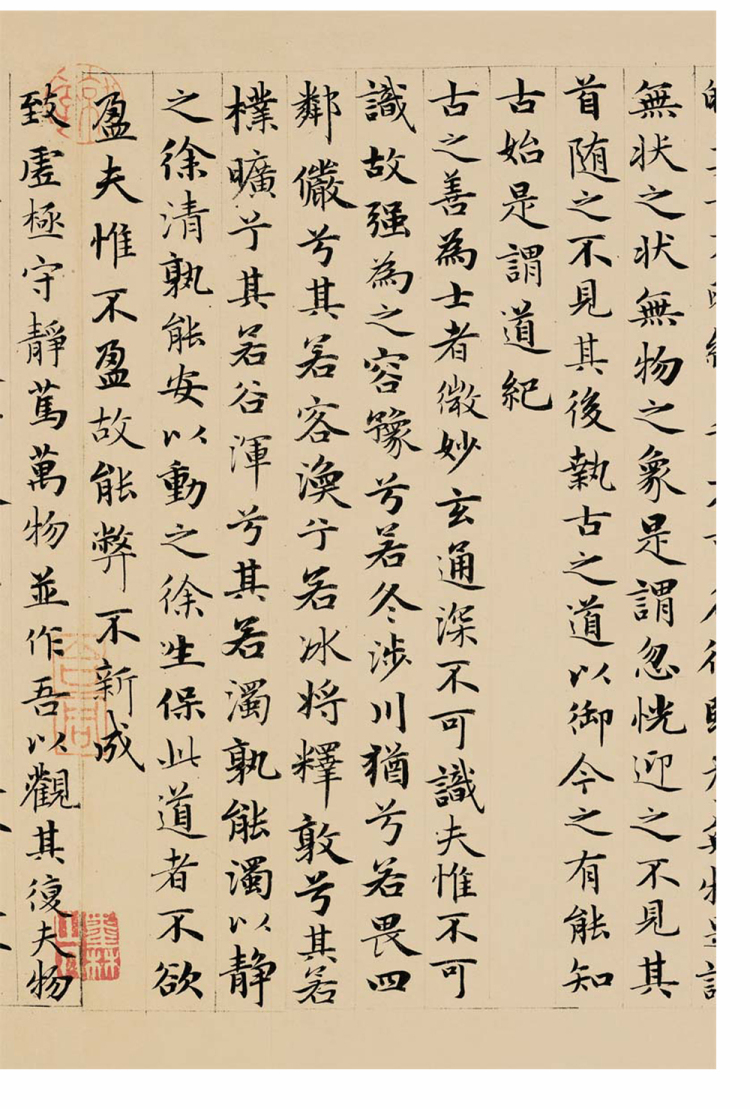 無狀之狀無物之象是謂忽恍迎之不見其
首随之不見其後執古之道以御今之有能知
古始是謂道紀
古之善為士者微妙玄通深不可識夫惟不可
識故强為之容豫兮若冬涉川猶兮若畏四
鄰儼兮其若容渙兮若冰将釋敦兮其若
樸曠兮其若谷渾兮其若濁孰能濁以静
之徐清孰能安以動之徐生保此道者不欲
盈夫惟不盈故能弊不新成
致虛極守靜篤萬物並作吾以觀其復夫物